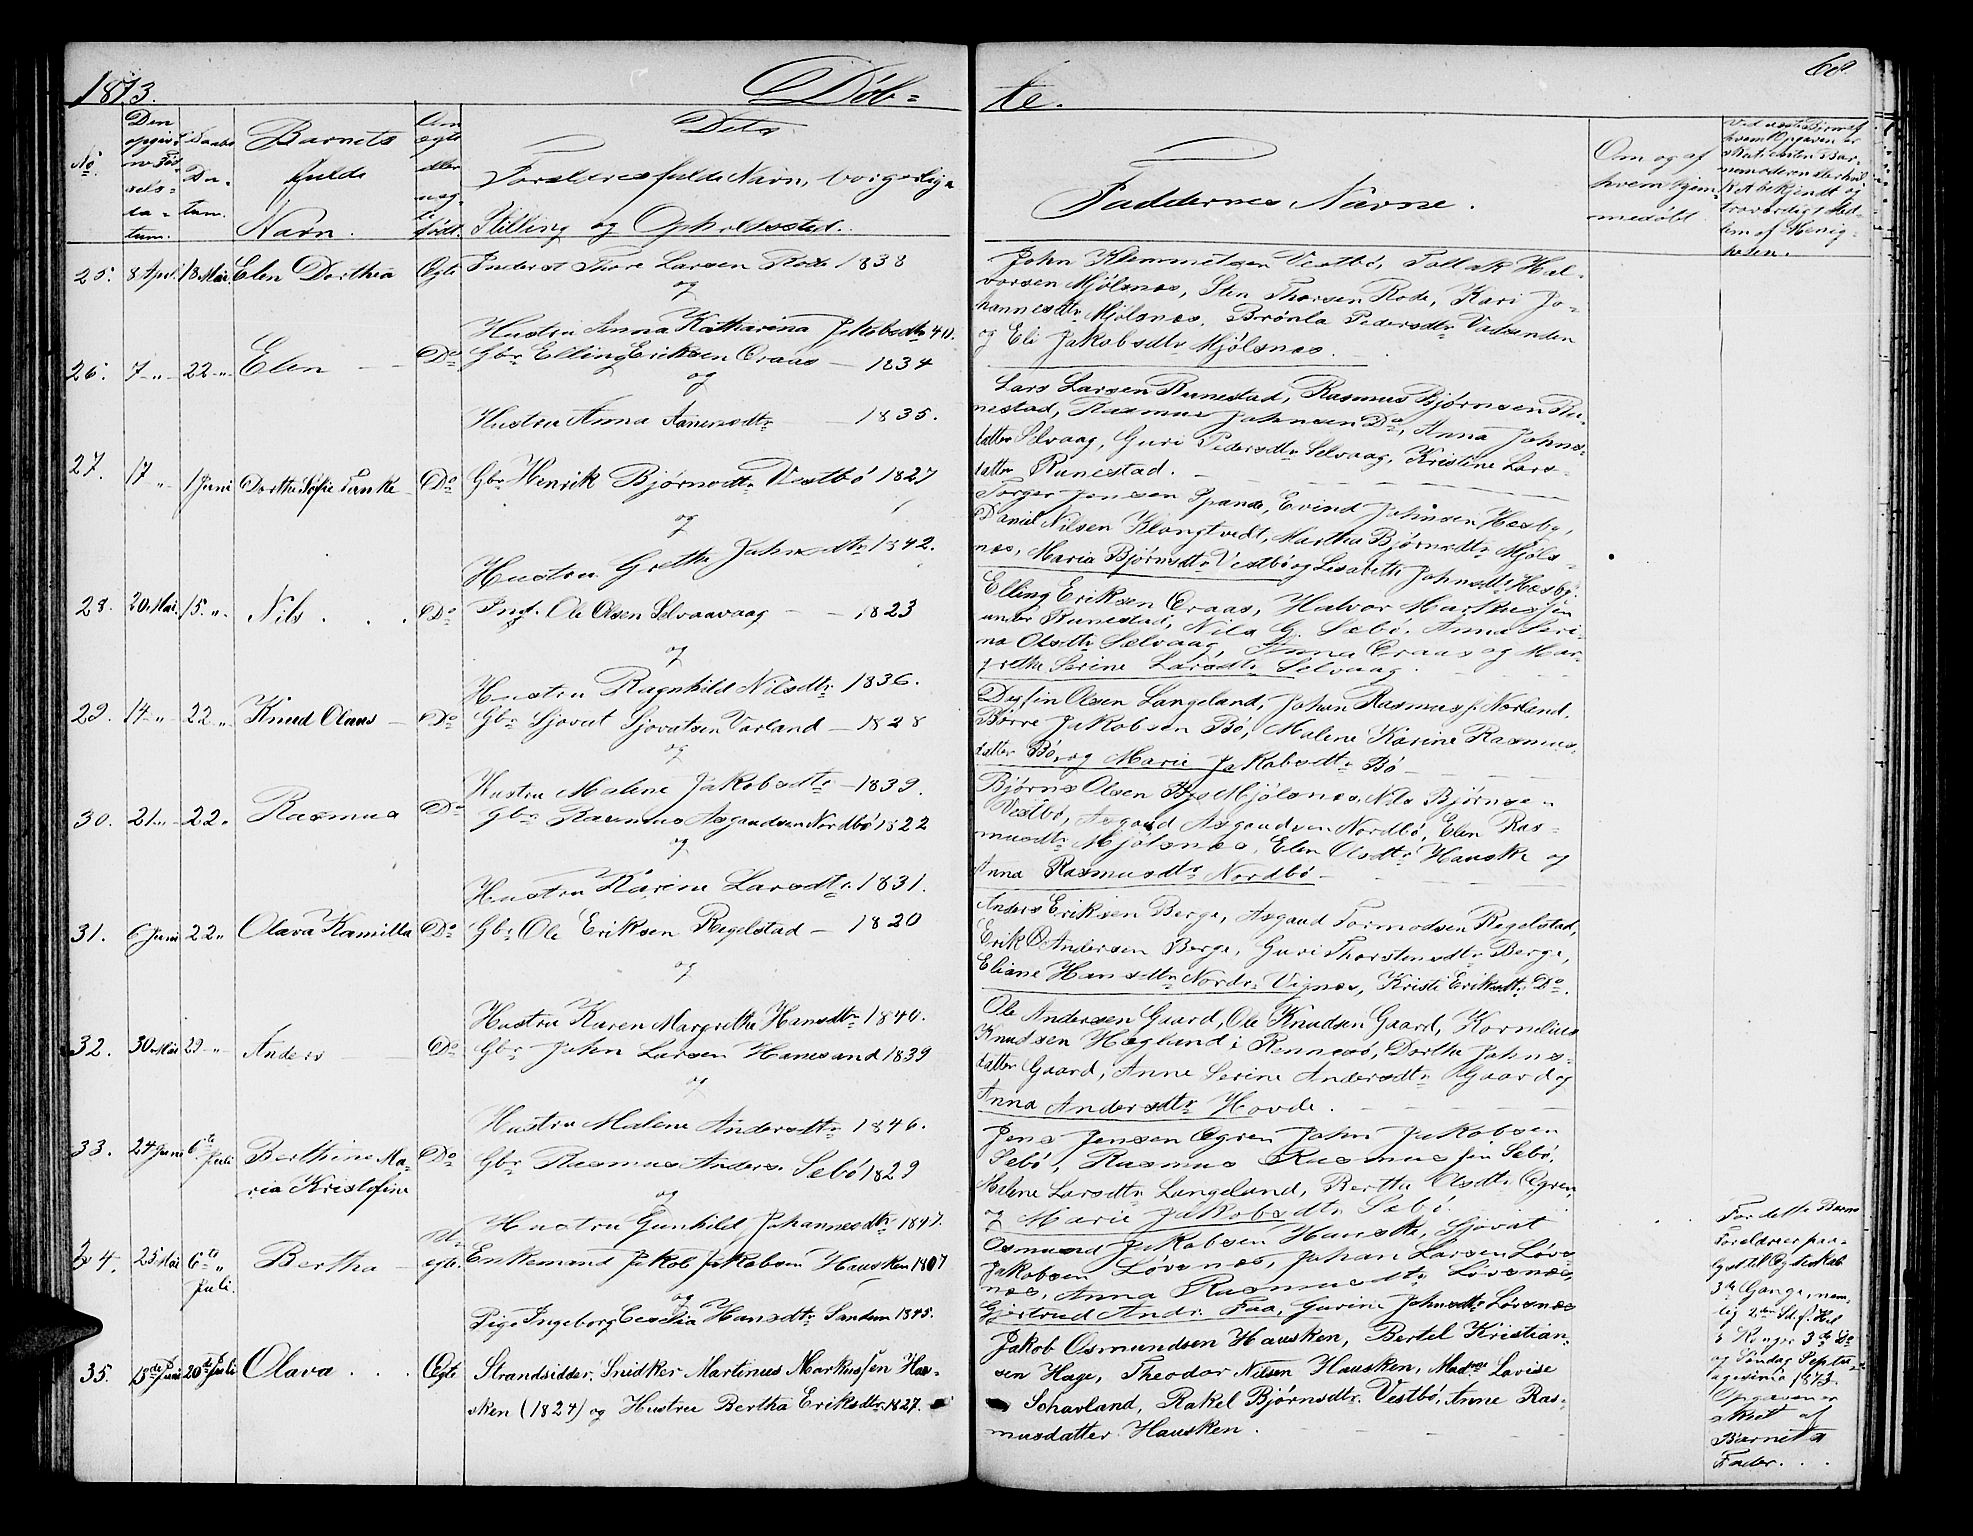 1873.
Døb=
te.
68
No.
Den opgivne Fødselsdatum.
Daabs Datum.
Barnets fulde Navn.
Om ægte eller uægte født.
Dets Forældres fulde Navn, borgerlige Stilling og Opholdssted.
Faddernes Navne.
Om og af hvem hjemmedøbt
25. 8 Apl. 18 Mai. Elen Dorthea Ægte Inderst Thore Larsen Rode 1838
og
Hustru Anna Katharina Jakobsdtr 40.
John Klemmetsen Vestbø, Tollak Hal-
vorsen Mjølsnes, Sten Thorsen Rode, Kari Jo-
hannesdtr Mjølsnes, Brønla Pedersdtr
og Eli Jakobsdtr Mjølsnes.
26. 7 " 22 " Elen Do Gbr Elling Eriksen Craas 1834
og
Hustru Anna 1835.
Lars Larsen Runestad, Rasmus Bjørnsen Ru-
nestad, Rasmus Johnsen Do, Anna Johns-
datter Selvaag, Guri Pedersdtr Selvaag, Kristine Lars-
datter Runestad.
27. 17 " 1 Juni Dorthe Sofie Do Gbr Henrik Bjørnsdtr Vestbø 1827
og
Hustru Grethe Johnsdtr 1842.
Torger Jensen Spanne, Evind Johnsen Hæsbø,
Daniel Nilsen Klongtvedt, Martha Bjørnsdtr Mjøls-
nes, Maria Bjørnsdtr Vestbø og Lisabeth Johnsdtr Hæsby.
28. 20 Mai. 15. " Nils Do Ole Olsen Selvaavaag 1823
og
Hustru Ragnhild Nilsdtr 1836.
Elling Eriksen Craas, Halvor Markussen
Runestad, Nils G. Sæbø, Anna Seri-
na Olsdtr Sælvaag, Anna Craas og Mar-
grethe Serine Larsdtr Selvaag.
29. 14 " 22 " Knud Olaus Do Gbr Sjovat Sjovatsen Varland 1828
og
Hustru Malene Jakobsdtr 1839.
Olsen Langeland, Johan Rasmus sen Norland,
Børre Jakobsen Bø, Malene Karine Rasmus-
datter Bø og Marie Jakobsdtr Bø
30. 21 " 22 " Rasmus Do Gbr Rasmus Asgaudsen Nordbø 1822
og
Hustru Karine Larsdtr 1831.
Bjørns Olsen Mjølsnes, Nils Bjørnsen
Vestbø, Asgaud Asgaudsen Nordbø, Elen Ras-
musdtr Mjølsnes, Elen Olsdtr Hauske og
Anna Rasmusdtr Nordbø
31. 6 Juni 22 " Olava Kamilla Do Gbr Ole Eriksen Regelstad 1820
og
Hustru Karen Margrethe Hansdtr 1840.
Anders Eriksen Berge, Asgaud Tormodsen Regelstad,
Erik Andersen Berge, Guri Thorstensdtr Berge,
Eliane Hansdtr Nordr. Vignes, Kristi Eriksdtr Do.
32. 30 Mai 29 " Anders Do Gbr John Larsen Hanesand 1839
og
Hustru Malene Andersdtr 1846.
Ole Andersen Gaard, Ole Knudsen Gaard, Kornelius
Knudsen Hegland i Rennesø, Dorthe Johns-
datter Gaard, Anne Serine Andersdtr Gaard og
Anna Andersdtr Hovde.
33. 24 Juni 6te Juli Berthine Ma-
ria Kristofine Do Gbr Rasmus Anders. Sebø 1829
og
Hustru Gunhild Johannesdtr 1847.
Jens Jensen Øgren John Jakobsen
Sebø, Rasmus Rasmussen Sebø,
Malene Larsdtr Langeland, Bertha Olsdtr Øgren,
og Marie Jakobsdtr Sebø.
34. 25 Mai 6te " Juli. Bertha U-
ægte. Enkemand Jakob Jakobsen Hausken 1807
og
Pige Ingeborg Cecilia Hansdtr Sandem 1845.
Osmund Jakobsen Hauske, Sjovat
Jakobsen Løvsnes, Johan Larsen Løvs-
nes, Anna Rasmusdtr Løvsnes,
Gjertrud Andr. Faa, Gurine Johnsdtr Løvsnes
For dette Barns
Forældrer paa-
gdtil Egteskab
3de Gange, nem-
lig 2den Sd. f. Hel
3 Konger 3de Do
og Søndag Septu-
agesima 1873.
Opgaven er
skret af
Barnets
Fader.
35. 18de Juni 20de Juli Olava Ægte Strandsidder, Snidker Martinus Markussen Hau-
sken (1824) og Hustru Bertha Eriksdtr 1827.
Jakob Osmundsen Hausken, Bertel Kristian-
sen Hage, Theodor Nilsen Hausken, Madme Lovise
Scharland, Rakel Bjørnsdtr. Vestbø, Anne Ras-
musdatter Hausken.